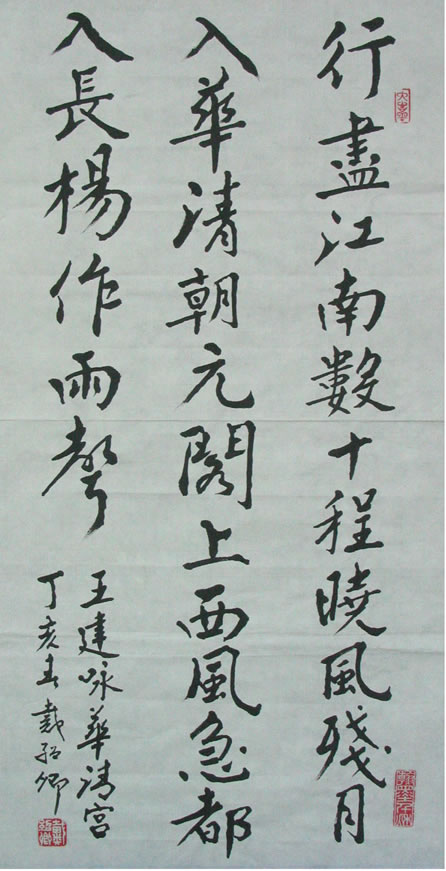 行盡江南數十程曉風殘月
入華清朝元閣上西風急都
入長楊作雨聲
王建咏華清宮
丁亥春戴紹卿